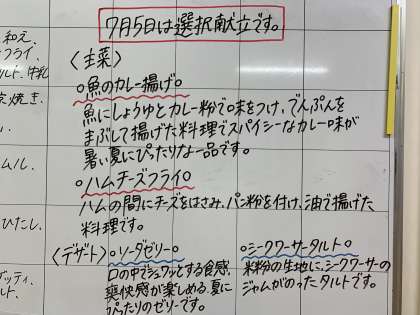 7月5日は選択献立です。
和え、
〈主菜〉
フライ、
ルト、牛乳
○魚のカレー揚げ○
焼き、
魚にしょうゆとカレー粉で味をつけ、でんぷんを
まぶして揚げた料理でスパイシーなカレー味が
暑い夏にぴったりな一品です。
ムル、
○ハムチーズフライ○
ハムの間にチーズをはさみ、パン粉を付け、油で揚げた
料理です。
ひたし、
〈デザート〉○ソーダゼリー○ ○シークワーサータルト○
口の中でシュワッとする食感、 米粉の生地に、シークワーサーの
爽快感が楽しめる、夏に ジャムがのったタルトです。
ぴったりのゼリーです。
ゲッティ、
ルト、